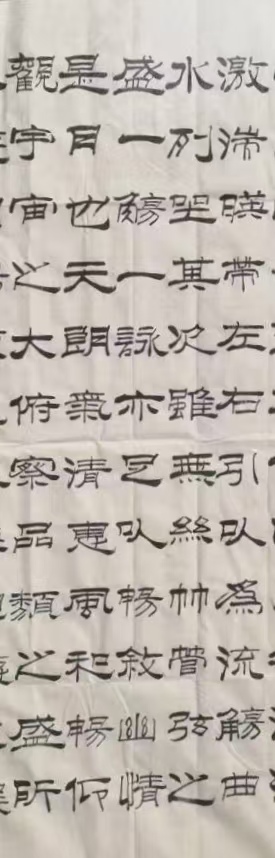 激湍暎帶左右引以為流觴曲
水列坐其次雖無絲竹管弦之
盛一觴一詠亦足以暢敘幽情
是日也天朗氣清惠風和暢仰
觀宇宙之大俯察品類之盛所